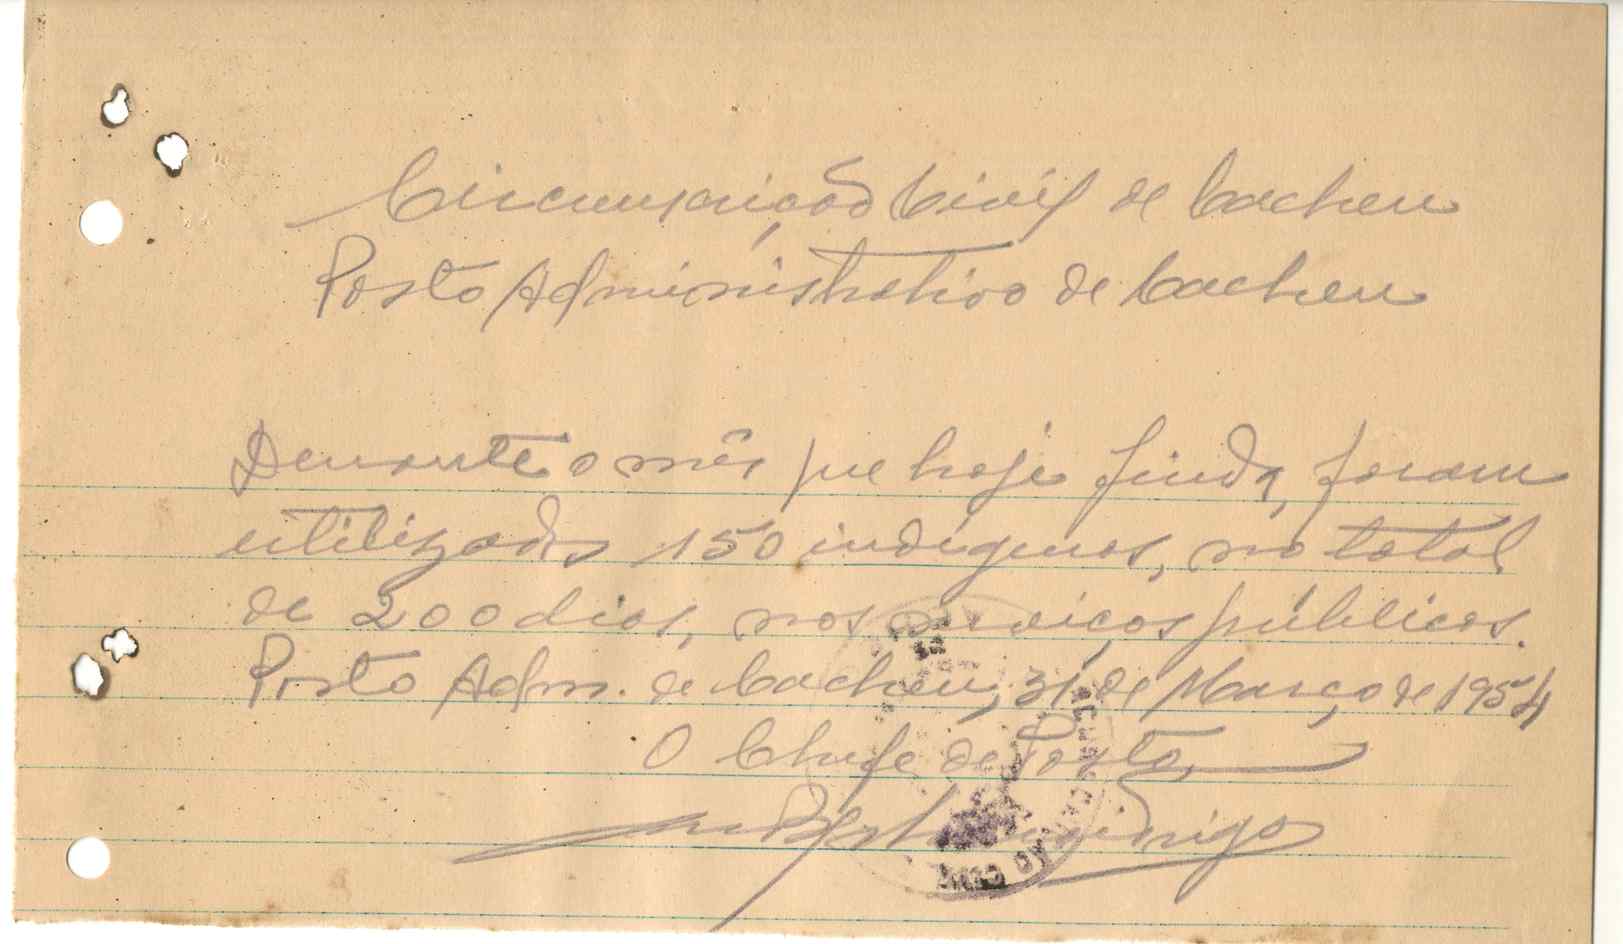 Circunscrição Civil de Cacheu
Posto Administrativo de Cacheu
Durante o mês que hoje finda, foram
utilizados 150 indígenas, no total
de 200 dias, nos serviços públicos.
Posto Adm. de Cacheu, 31 de Março de 1954
O Chefe de Posto,